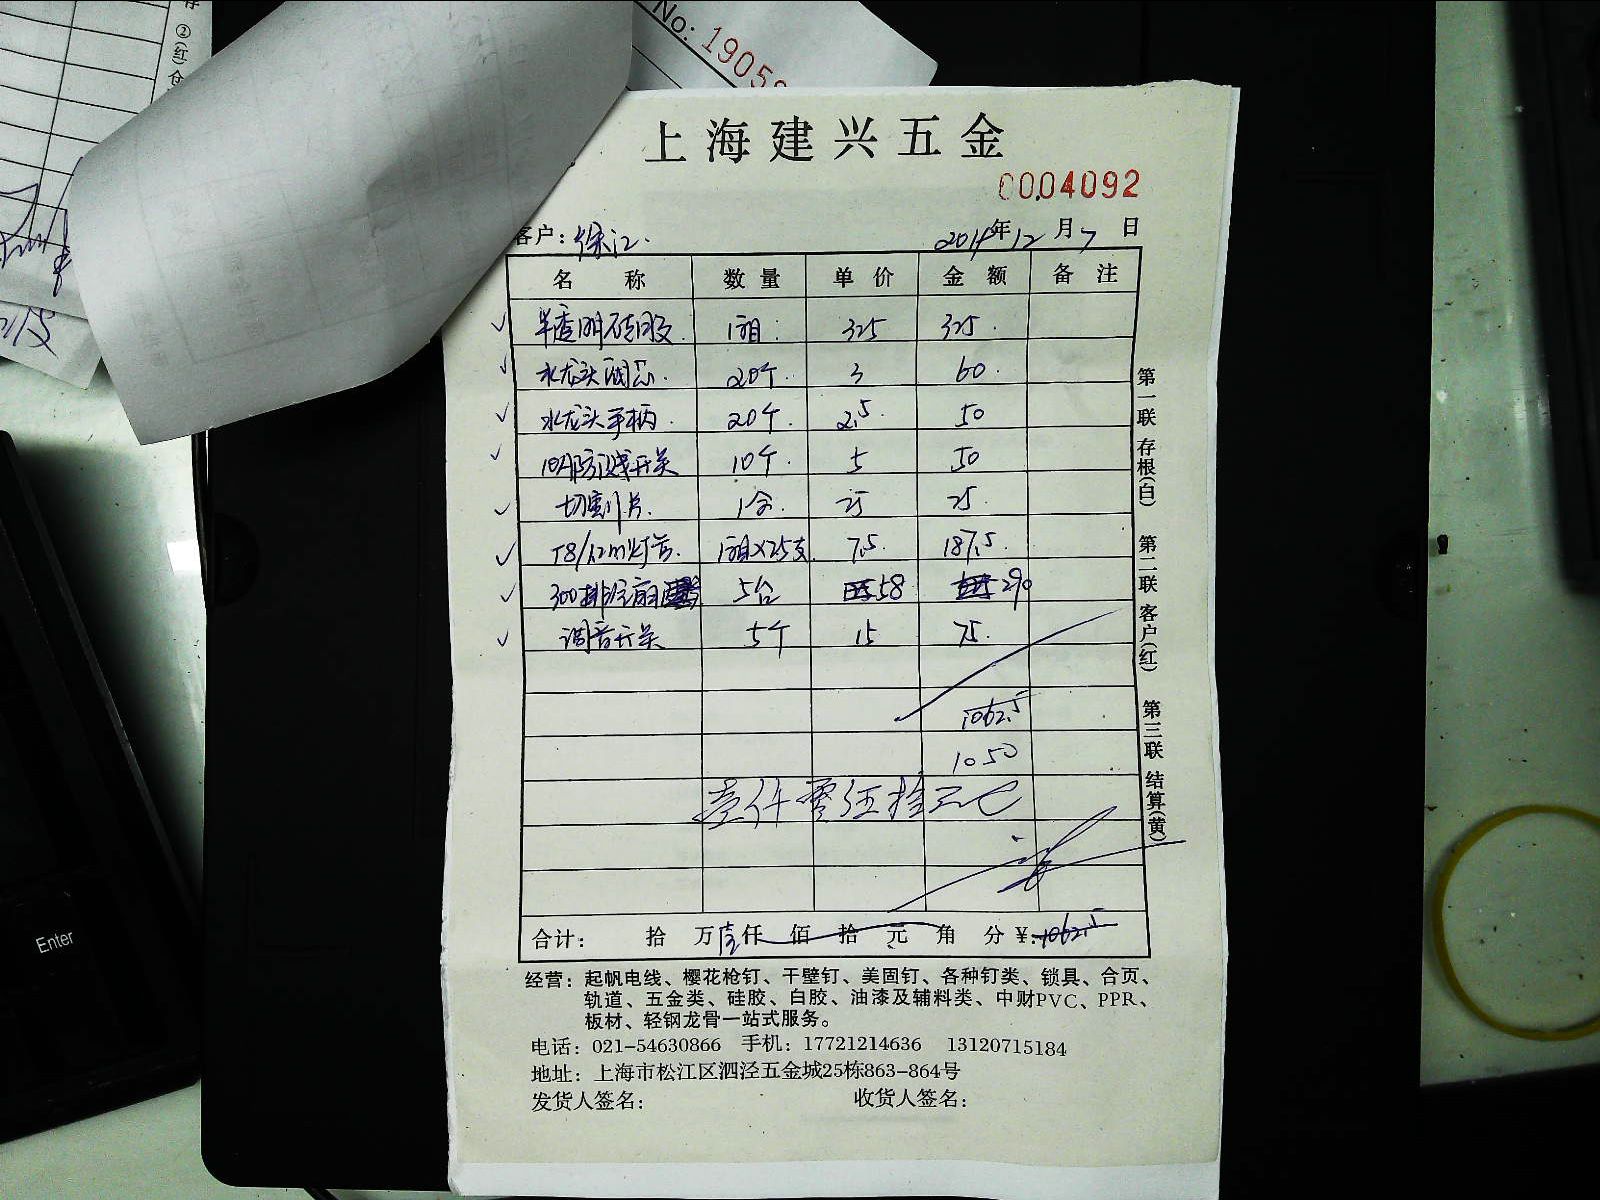 存 ②(红) 仓
No: 19058
上海建兴五金
0004092
客户：徐汇. 年12月7日
名称 数量 单价 金额 备注
半透明硅胶. 1箱. 325 325.
水龙头阀芯. 20个. 3 60.
水龙头手柄. 20个. 2.5. 50
开关 10个. 5 50
切割片. 1盒. 25 25.
T8/1.2m灯管. 1箱X25支 7.5. 187.5.
300排气扇 5台 58 290
调音开关 5个 15 75.
1062.5
1050
壹仟零伍拾元
合计： 拾 万壹仟 佰 拾 元 角 分 ¥:1062.5
第一联 存根(白) 第二联 客户(红) 第三联 结算(黄)
经营：起帆电线、樱花枪钉、干壁钉、美固钉、各种钉类、锁具、合页、
轨道、五金类、硅胶、白胶、油漆及辅料类、中财PVC、PPR、
板材、轻钢龙骨一站式服务。
电话：021-54630866 手机：17721214636 13120715184
地址：上海市松江区泗泾五金城25栋863-864号
发货人签名： 收货人签名：
Enter